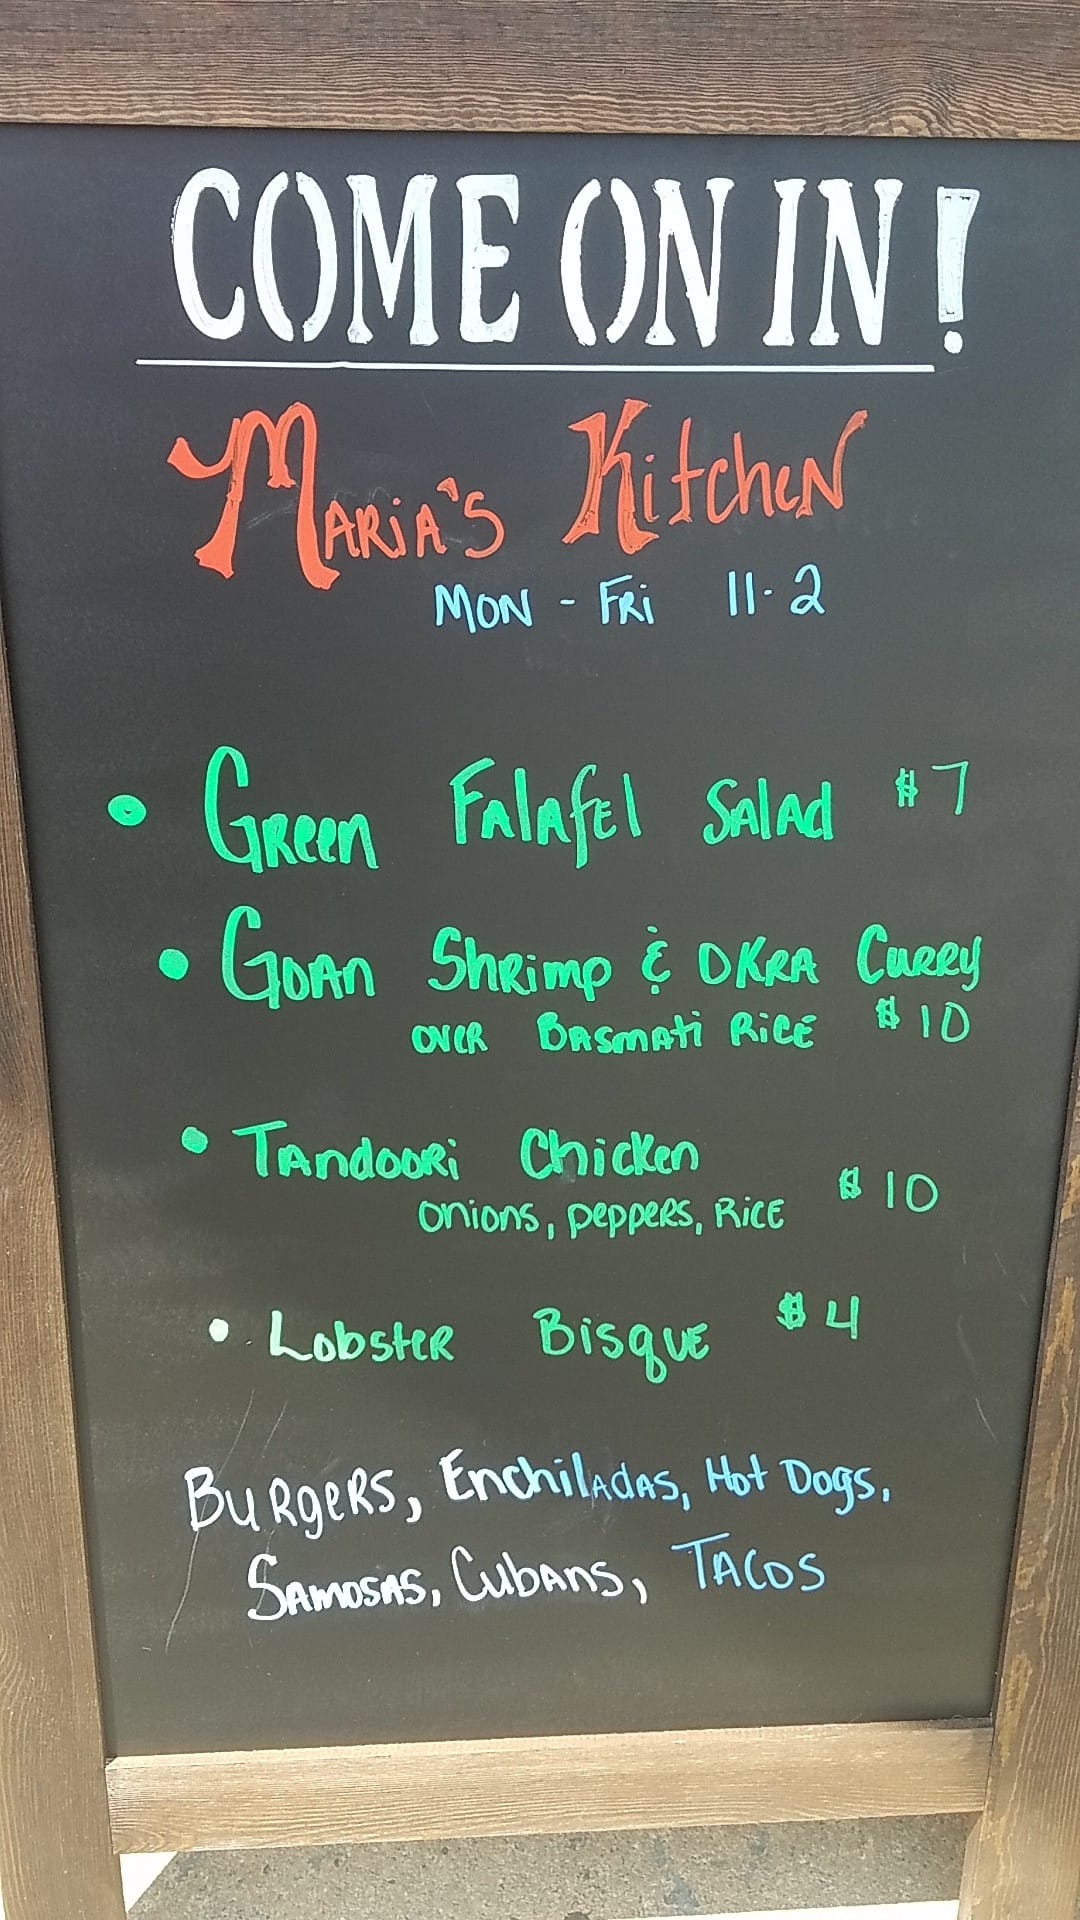 COME ON IN!
MARIA'S KitcheN
MON - FRi 11-2
• GReen FAlAfEl SAlAd $7
• GOAn ShRimp & OKRA CuRRy
OVER BASmAti RiCE $10
• TAndOORi ChicKen
Onions, peppeRs, RiCE $10
• LobsteR BisquE $4
BuRgeRS, EnchilAdAS, Hot Dogs,
SAmOSAS, CubAnS, TACOS